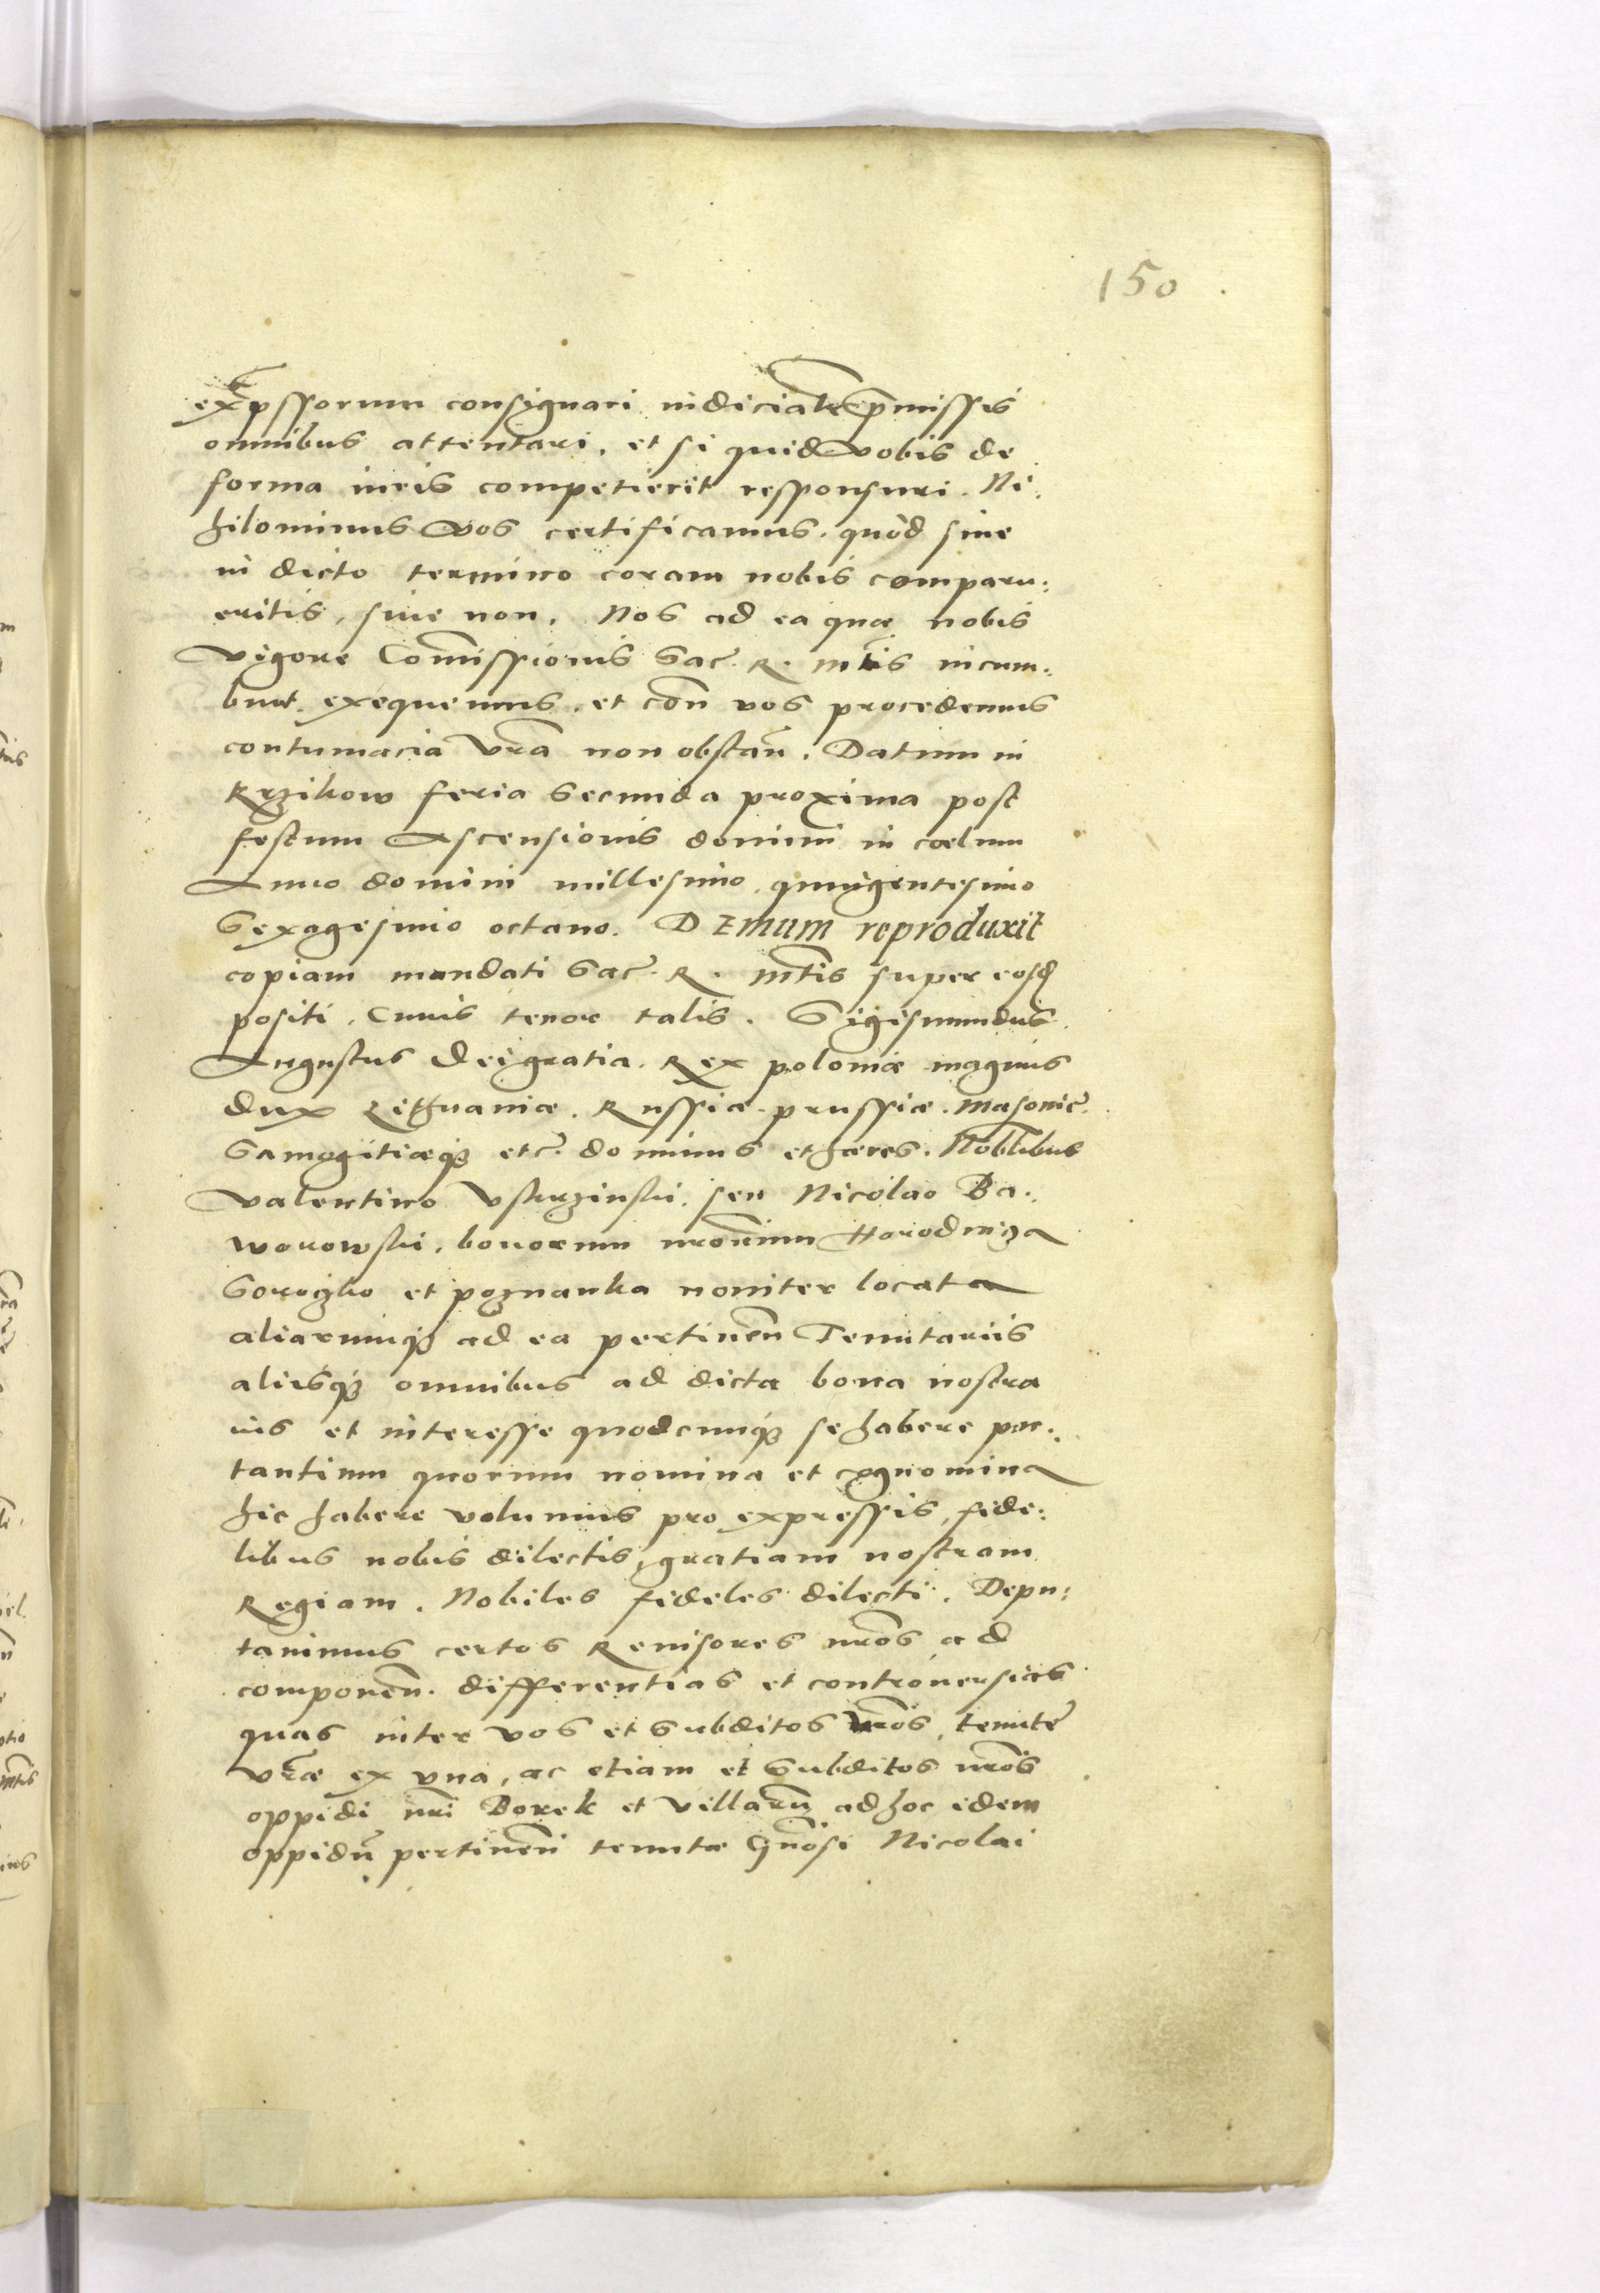 150
exp̃ssorum consignari iudicialr̃ p̃missis
omnibus attentari, et si quid vobis de
forma iuris competierit responsuri. Ni:
hilominus Vos certificamus. quòd siue
in dicto termino coram nobis comparu:
eritis, siue non. Nos ad ea quæ nobis
Vigore Com̃issionis Sac̃. R. Mt̃is incum:
bunt. exequemur. et con̄ vos procedemus
contumacia vr̃a non obstan̄. Datum in
feria Secunda proxima post
festum Ascensionis domini in cælum
Anno domini millesimo quingentesimo
Sexagesimo octauo. DEmum reproduxit
copiam mandati Sac̃. R. Mt̃is super eosd̃
positi. Cuius tenor talis. Sigismundus
Augustus Dei gratia. Rex poloniæ magnus
dux Lithuaniæ. Russiæ. prussiæ. Masouiæ.
Samogitiæq₃ etc̃. dominus et hæres. Nob̃libus
Valentino Vstrzinski. seu Nicolao Ba:
worowski. bonorum nr̃orum Horodnicza
Soroczko et poznanka nouiter locata
aliorumq₃ ad ea pertinen̄ Tenutariis
aliisq₃ omnibus ad dicta bona nostra
ius et interesse quodcumq₃ se habere præ:
tantium quorum nomina et cognomina
hic habere volumus pro expressis, fide:
libus nobis dilectis, gratiam nostram
Regiam. Nobiles fideles dilecti. Depu:
tauimus certos Reuisores nr̃os ad
componen̄. differentias et controuersias
quas inter vos et Subditos vr̃os, tenutæ
vr̃æ ex vna, ac etiam et Subditos nr̃os
oppidi nr̃i Borek et villarũ ad hoc idem
oppidũ pertinen̄ tenutæ Gn̄osi Nicolai